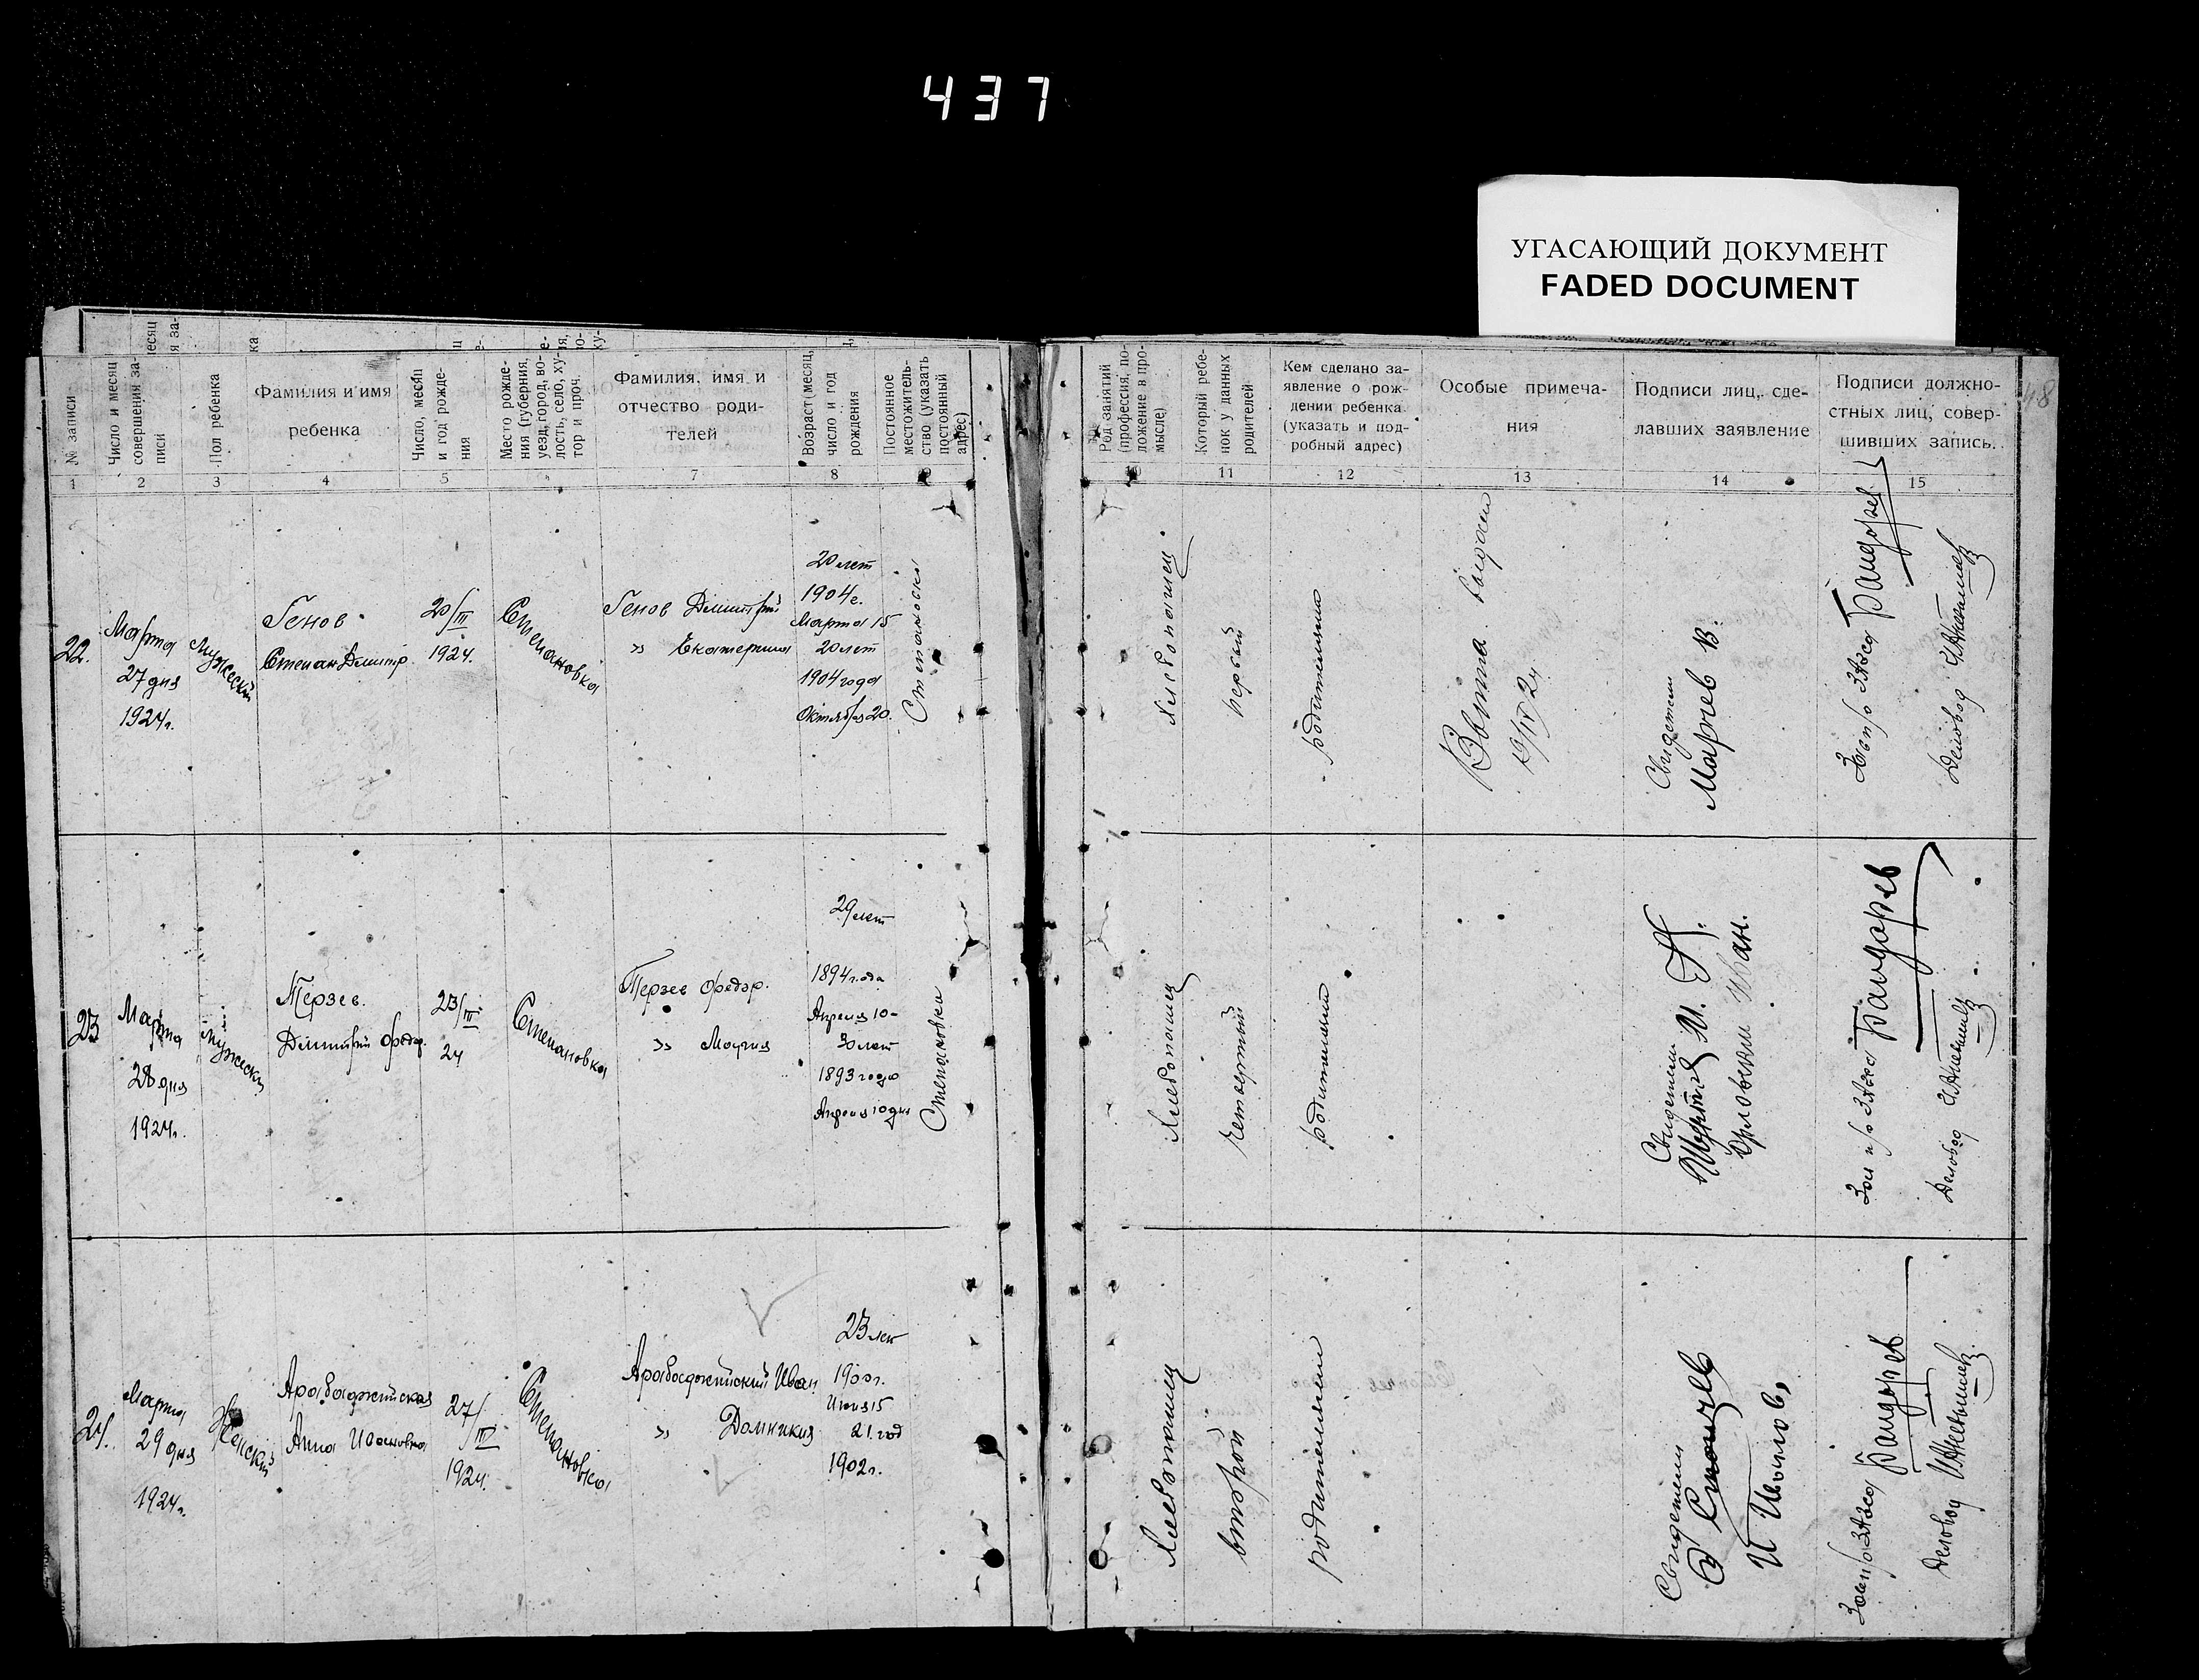 437
УГАСАЮЩИЙ ДОКУМЕНТ
FADED DOCUMENT
48
№ записи
Число и месяц
совершения за-
писи
Пол ребенка
Фамилия и имя
ребенка
Число, месяц
и год рожде-
ния
Место рожде-
ния (губерния,
уезд, город, во-
лость, село, ху-
тор и проч.
Фамилия, имя и
отчество роди-
телей
Возраст (месяц,
число и год
рождения
Постоянное
местожитель-
ство (указать
постоянный
адрес)
Род занятий
(профессия, по-
ложение в про-
мысле)
Который ребе-
нок у данных
родителей
Кем сделано за-
явление о рож-
дении ребенка
(указать и под-
робный адрес)
Особые примеча-
ния
Подписи лиц, сде-
лавших заявление
Подписи должно-
стных лиц, совер-
шивших запись.
1 2 3 4 5 7 8 10 11 12 13 14 15
22.
Марта
27 дня
1924г.
Мужеский
Генов
Степан Димитр.
20/III
1924.
Степановка
Генов Димитрий
» Екатерина
20 лет
1904г.
Марта 15
20 лет
1904 года
Октября 20.
Степановка
Хлебопашец
первый
родителями
13/IV 24
Свидетели
Марчев В.
Деловод
23
Марта
28 дня
1924г.
Мужески
Терзев.
Димитрий Федор.
23/III
24
Степановка
Терзев Федор.
» Мария
29 лет
1894 года
Апреля 10-
30 лет
1893 года
Апреля 10 дня
Степановка
Хлебопашец
четвертый
родителями
Свидетели
Иван.
Деловод
24.
Марта
29 дня
1924г.
Женский
Арабаджийская
Анна Ивановна
27/III
1924.
Степановка
Арабаджийский Иван
» Домникия
23 лет
1900г.
Июня 15
21 год
1902г.
Хлебопашец
второй
родителями
Свидетели
Деловод